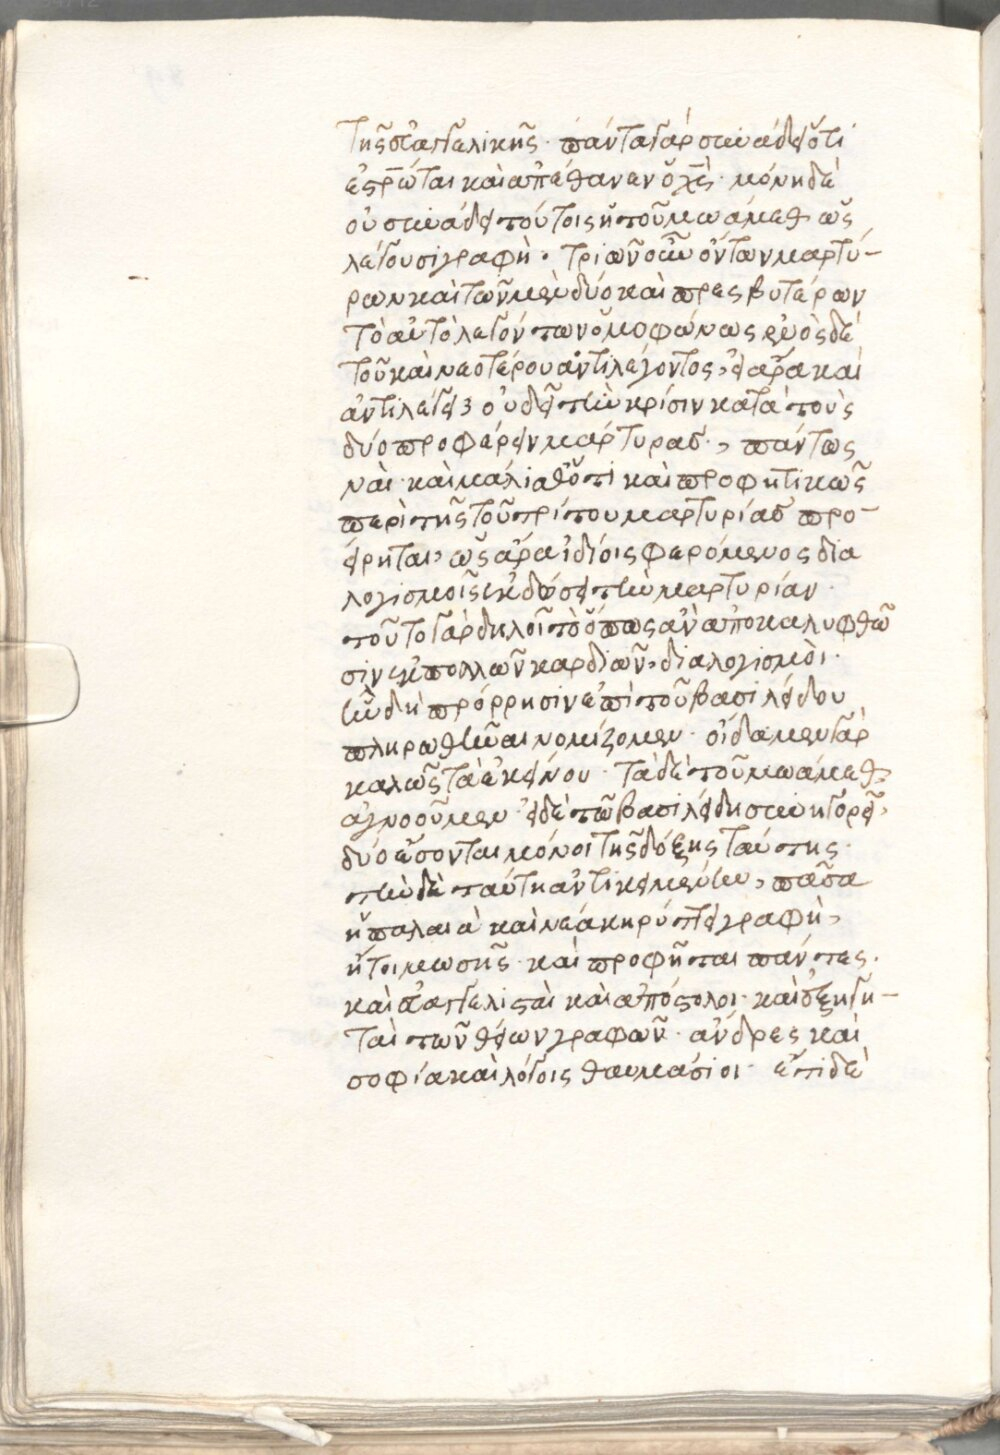 τῆς εὐαγγελικῆς· πάντα γὰρ συνάδει ὅτι
ἐσρώται καὶ ἀπέθανεν ὁ χς· μόνη δὲ
οὐ συνάδει τούτοις ἡ τοῦ μωάμεθ ὡς
λέγουσι γραφή· τριῶν οὖν ὄντων μαρτύ-
ρων καὶ τῶν μὲν δύο καὶ πρεσβυτέρων
τὸ αὐτὸ λεγόντων ὁμοφώνως ἑνὸς δὲ
τοῦ καὶ νεοτέρου ἀντιλέγοντος, εἰ ἄρα καὶ
ἀντιλέγει οὐ δεῖ τὴν κρίσιν κατὰ τοὺς
δύο προφέρειν μάρτυρας, πάντως
ναί· καὶ μάλιαθ ὅτι καὶ προφητικῶς
περὶ τῆς τοῦ τρίτου μαρτυρίας προ-
είρηται, ὡς ἄρα ἰδίοις φερόμενος δια
λογισμοῖς ἐκδώσει τὴν μαρτυρίαν·
τοῦτο γὰρ δηλοῖ τὸ ὅπως ἂν ἀποκαλυφθῶ
σιν ἐκ πολλῶν καρδιῶν, διαλογισμοί·
ἣν δὴ πρόρρησιν ἐπὶ τοῦ βασιλείδου
πληρωθῆναι νομίζομεν· οἴδαμεν γὰρ
καλῶς τὰ ἐκείνου· τὰ δὲ τοῦ μωάμεθ
ἀγνοοῦμεν· εἰ δὲ τῷ βασιλείδη συνηγορεῖ,
δύο ἔσονται μόνοι τῆς δόξης ταύτης·
τὴν δὲ ταύτη ἀντικειμένην, πᾶσα
ἡ παλαιὰ καὶ νέα κηρύττει γραφή,
ἤτοι μωσῆς· καὶ προφῆται πάντες·
καὶ εὐαγγελισταὶ καὶ ἀπόστολοι· καὶ ἐξηγη-
ταὶ τῶν θείων γραφῶν· ἄνδρες καὶ
σοφία καὶ λόγοις θαυμάσιοι· ἔτι δὲ